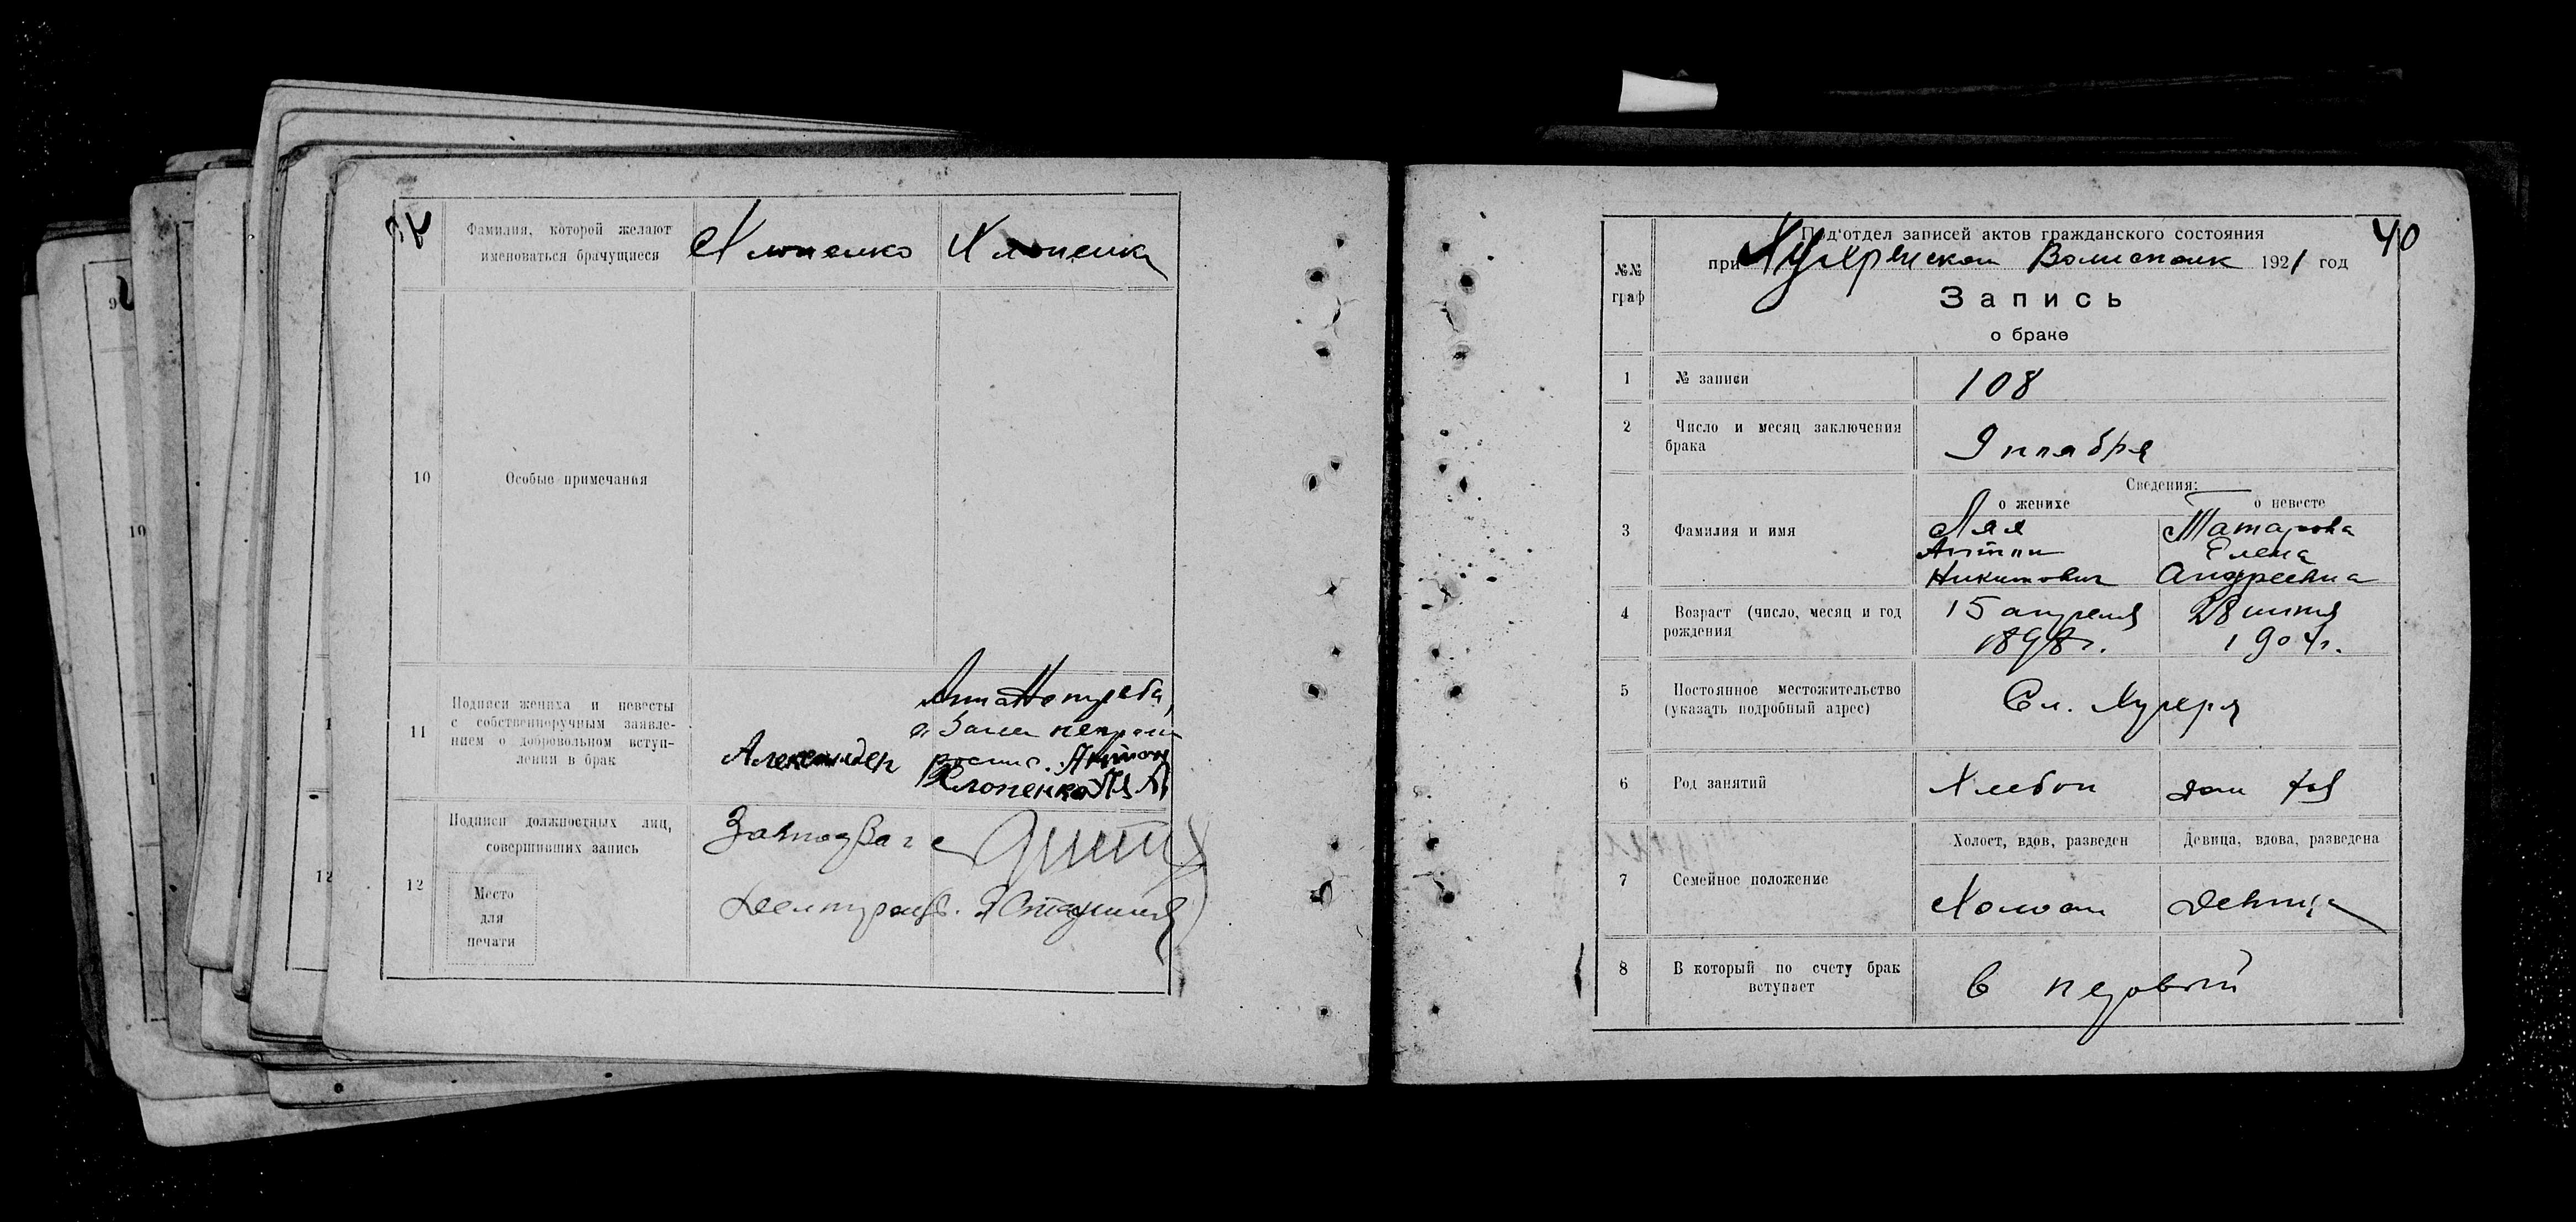 Фамилия, которой желают
именоваться брачущиеся
Хлопенко Хлопенко
10
Особые примечания
11
Подписи жениха и невесты
с собственноручным заявле-
нием о добровольном вступ-
лении в брак
Анна
а за нея
Александр роспис. Антон
Хлопенко
12
Подписи должностных лиц,
совершивших запись
Место
для
печати
Завподзагс
9
10
1
12
40
№№
граф
Под'отдел записей актов гражданского состояния
при Хухрянском Волисполк 1921 год
Запись
о браке
1
№ записи
108
2
Число и месяц заключения
брака
9 ноября
Сведения:
о женихе о невесте
3
Фамилия и имя
Ляя Татарова
Антон Елена
Никитович Андреевна
4
Возраст (число, месяц и год
рождения
15 апреля 28
1898г. 1904г.
5
Постоянное местожительство
(указать подробный адрес)
Сл. Хухря
6
Род занятий
Хлебоп дом хоз
7
Семейное положение
Холост, вдов, разведен Девица, вдова, разведена
Холост Девица
8
В который по счету брак
вступает
в первый